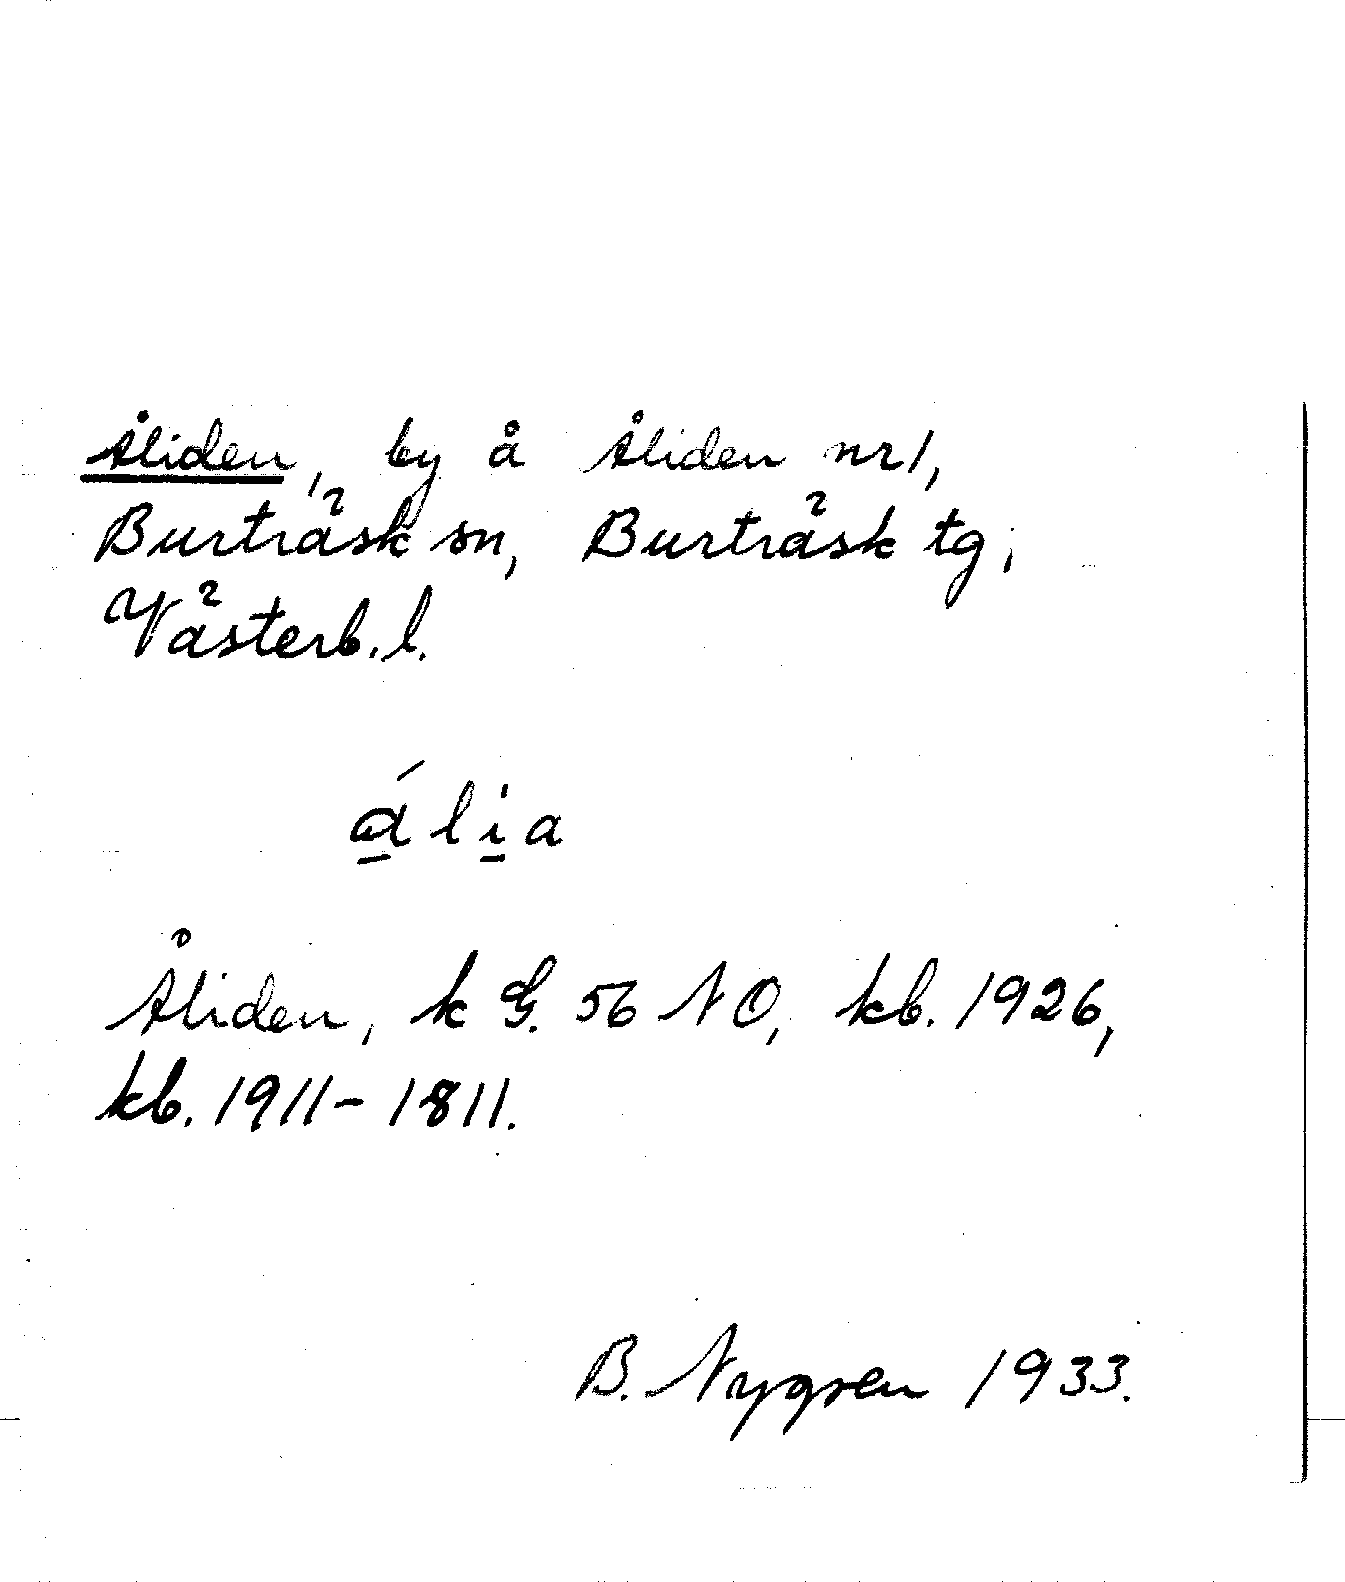 Åliden, by å Åliden nr 1,
Burträsk sn, Burträsk tg;
Västerb. l.
ά̱li̱a
Åliden, k G. 56 NO, kb. 1926,
kb. 1911-1811.
B. Nygren 1933.